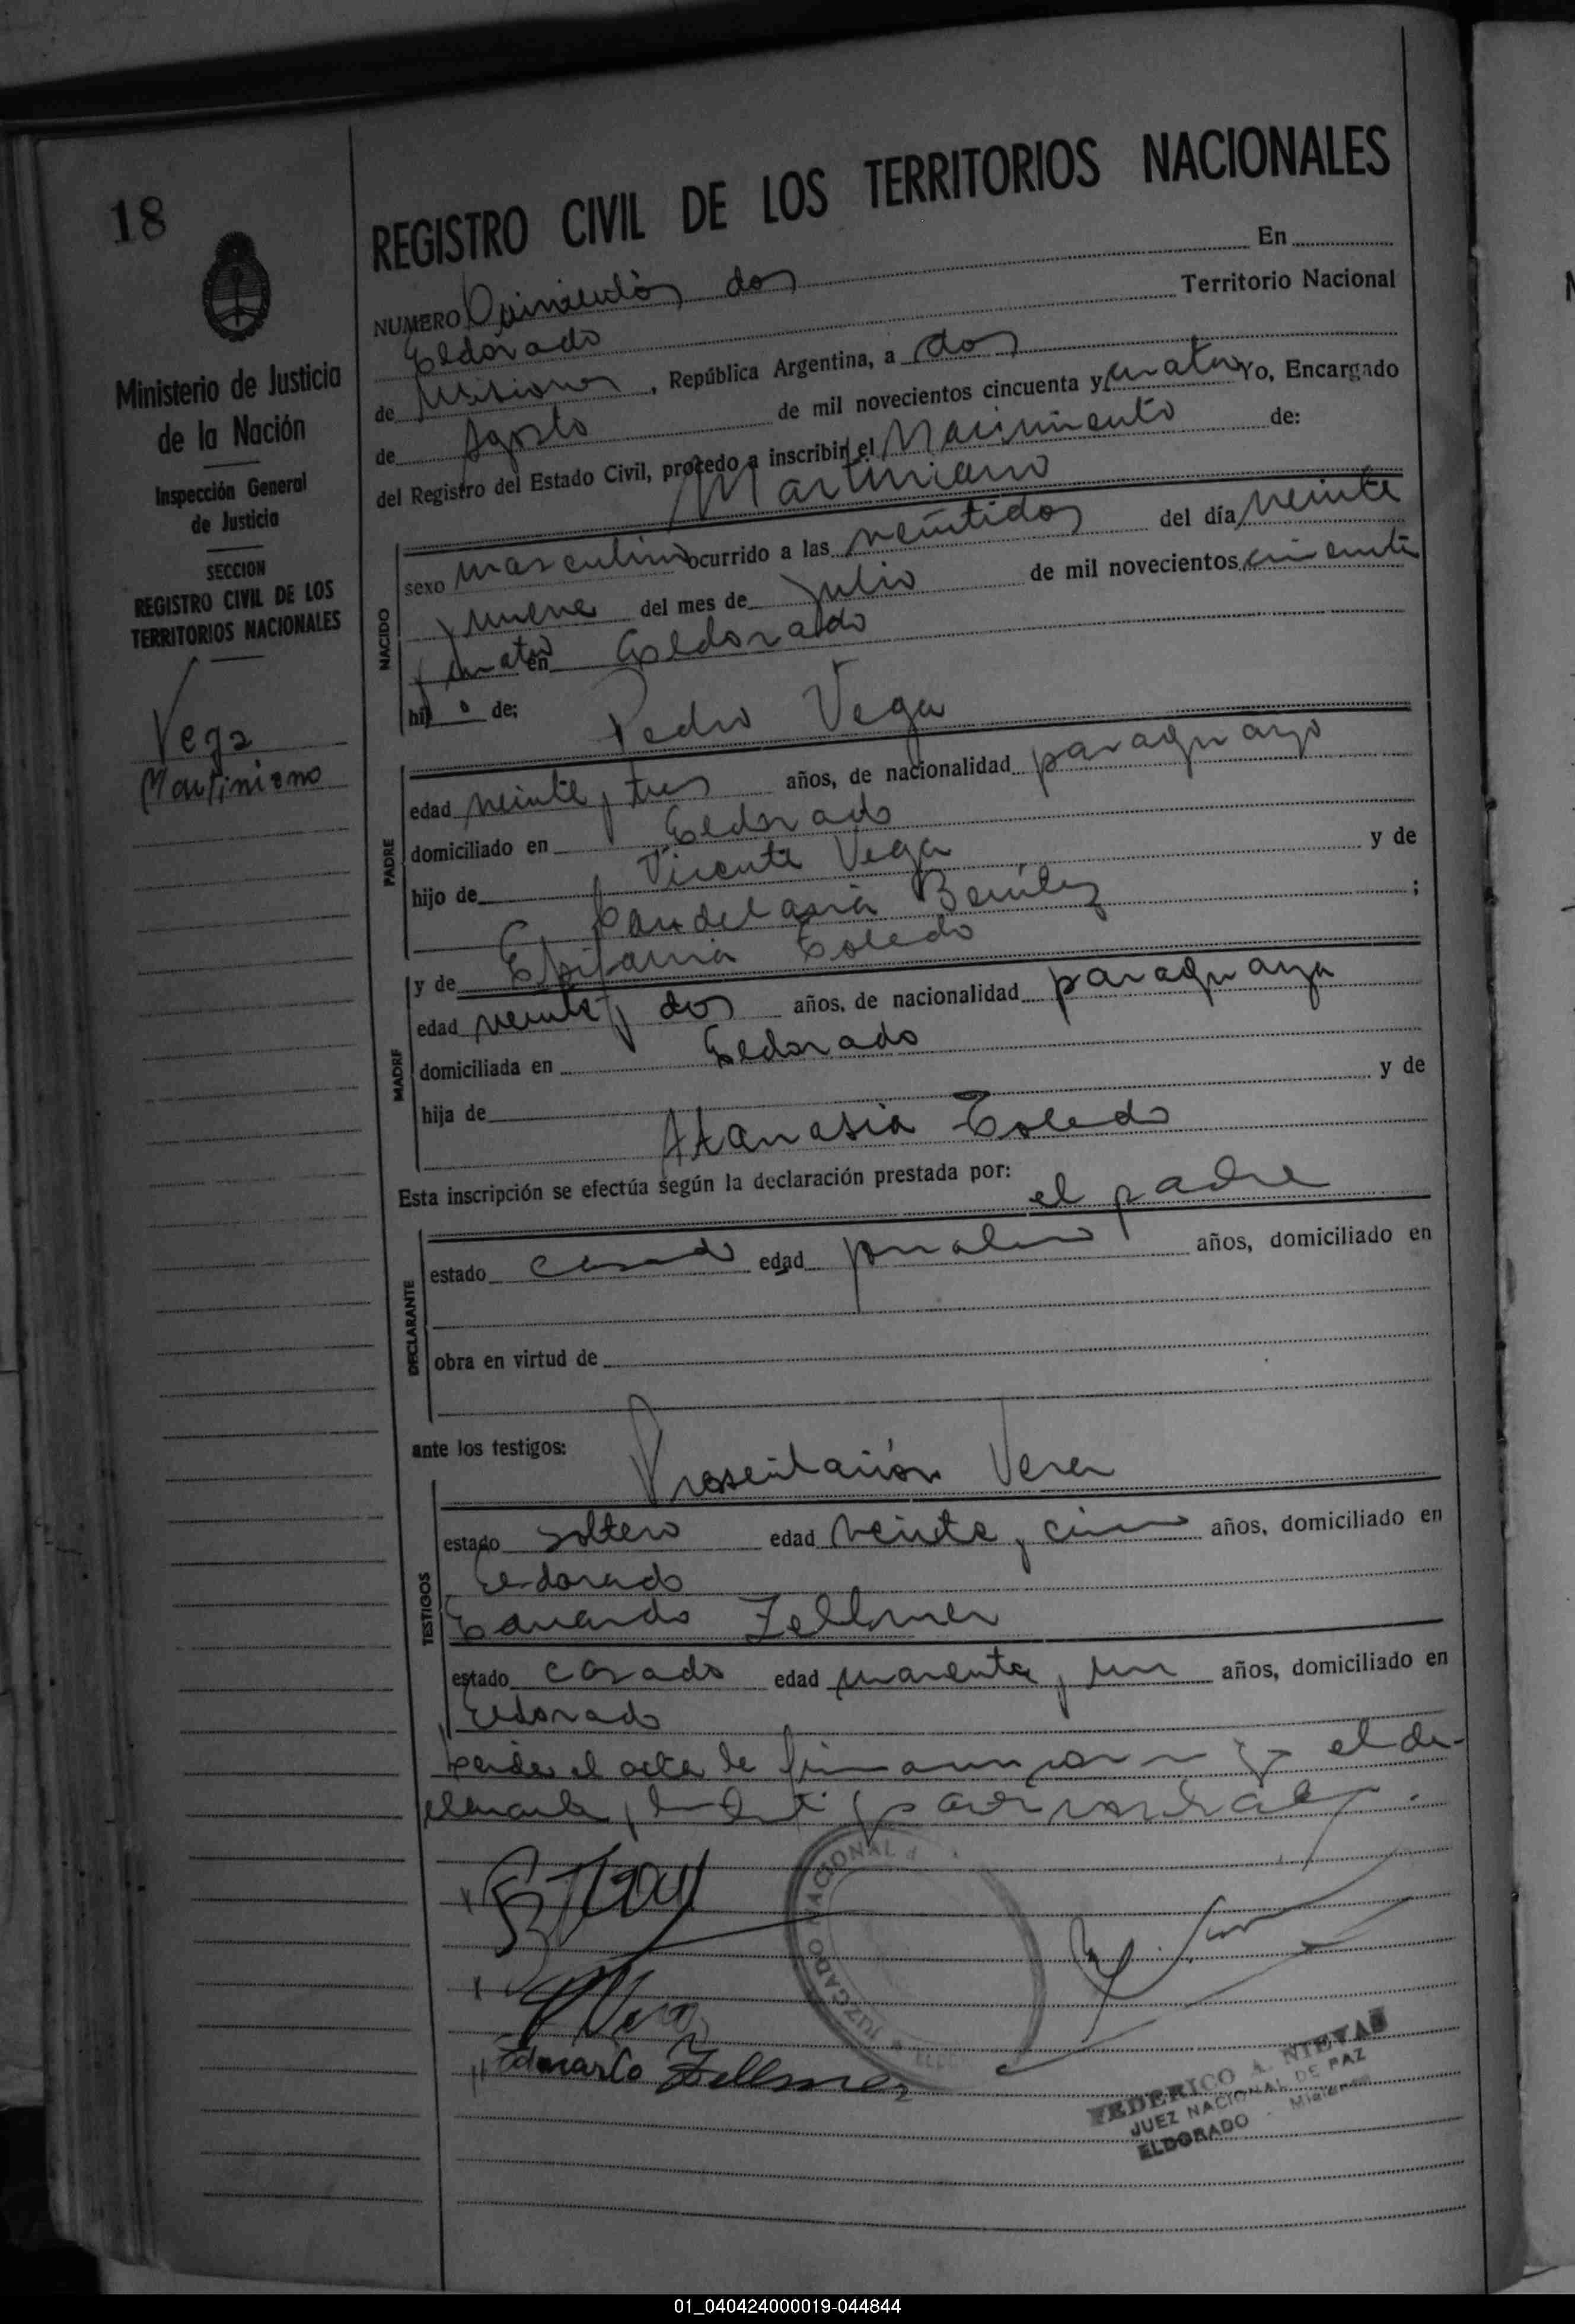 18
Ministerio de Justicia
de la Nación
Inspección General
de Justicia
SECCION
REGISTRO CIVIL DE LOS
TERRITORIOS NACIONALES
Vega
Martiniano
REGISTRO CIVIL DE LOS TERRITORIOS NACIONALES
NUMERO Quinientos dos En
Eldorado Territorio Nacional
de Misiones, República Argentina, a dos
de Agosto de mil novecientos cincuenta y cuatro Yo, Encargado
del Registro del Estado Civil, procedo a inscribir el Nacimiento de:
Martiniano
NACIDO
sexo masculino ocurrido a las veintidos del día veinte
y nueve del mes de Julio de mil novecientos cincuenta
y cuatro en Eldorado
hijo de;
Pedro Vega
PADRE
edad veinte y tres años, de nacionalidad paraguayo
domiciliado en Eldorado
hijo de Vicente Vega y de
Candelaria Benitez ;
y de Epifania Toledo
MADRE
edad veinte y dos años, de nacionalidad paraguaya
domiciliada en Eldorado
hija de y de
Atanasia Toledo
Esta inscripción se efectúa según la declaración prestada por:
el padre
DECLARANTE
estado casado edad años, domiciliado en
obra en virtud de
ante los testigos:
Presentación Vera
TESTIGOS
estado soltero edad veinte y cinco años, domiciliado en
Eldorado
Eduardo Zellmer
estado casado edad cuarenta y un años, domiciliado en
Eldorado
el acta la el de-
JUZGADO NACIONAL d
Eduardo Zellmer
FEDERICO A. NIEVAS
JUEZ NACIONAL DE PAZ
ELDORADO - Misiones
01_040424000019-044844